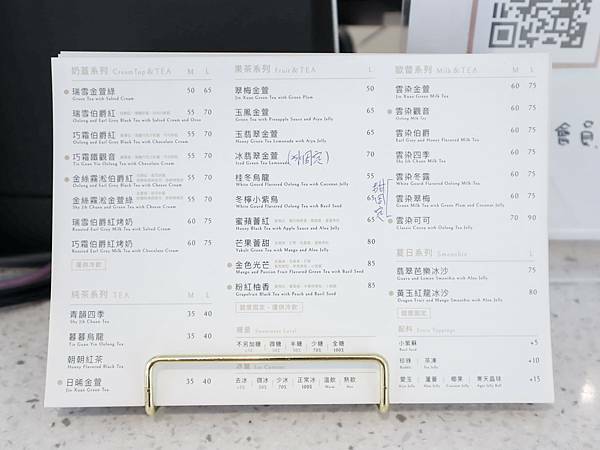 奶蓋系列 CreamTop&TEA M L
瑞雪金萱綠 50 65
Green Tea with Salted Cream
瑞雪伯爵紅 55 70
Oolong and Earl Grey Black Tea with Salted Cream and Oreo
巧霜伯爵紅 55 70
Oolong and Earl Grey Black Tea with Chocolate Cream
巧霜鐵觀音 55 70
Tie Guan Yin Oolong Tea with Chocolate Cream
金絲霧淞伯爵紅 55 70
Oolong and Earl Grey Black Tea with Cheese Cream
金絲霧淞金萱綠 55 70
Shy Jih Chuen and Green Tea with Cheese Cream
瑞雪伯爵紅烤奶 60 75
Roasted Earl Grey Milk Tea with Salted Cream
巧霜伯爵紅烤奶 60 75
Roasted Earl Grey Milk Tea with Chocolate Cream
僅供冷飲
純茶系列 TEA M L
青韻四季 35 40
Shy Jih Chuen Tea
暮暮烏龍 35 40
Tie Guan Yin Oolong Tea
朝朝紅茶 35 40
Honey Flavored Black Tea
日晞金萱 35 40
Jin Xuan Green Tea
果茶系列 Fruit&TEA L
翠梅金萱 50
Jin Xuan Green Tea with Green Plum
玉鳳金萱 65
Green Tea with Pineapple Sauce and Aloe Jelly
玉翡翠金萱 65
Honey Lemon Green Tea with Aloe Jelly
冰翡翠金萱 (冰固定) 70
Iced Green Tea Lemonade
桂冬烏龍 55
White Gourd Flavored Oolong Tea with Coconut Jelly
冬檸小紫烏 65
White Gourd Flavored Oolong Tea with Lemon and Basil Seed
甜固定
蜜蘋薈紅 65
Honey Black Tea with Apple Sauce and Aloe Jelly
芒果薈甜 80
Fresh Yakult Tea with Mango and Aloe Jelly
金色光芒 85
Mango and Passion Fruit Flavored Green Tea with Basil Seed
粉紅柚香 85
Grapefruit Black Tea with Peach and Basil Seed
甜度固定・僅供冷飲
糖量 Sweetness Level
不另加糖 微糖 半糖 少糖 全糖
30% 50% 70% 100%
冰量 Ice Content
去冰 微冰 少冰 正常冰 溫飲 熱飲
歐蕾系列 Milk&TEA M L
雲染金萱 60 75
Jin Xuan Green Milk Tea
雲染觀音 60 75
Oolong Milk Tea
雲染伯爵 60 75
Earl Grey and Honey Flavored Milk Tea
雲染四季 60 75
Shy Jih Chuen Milk Tea
雲染冬露 60 75
White Gourd Flavored Milk Tea
雲染翠梅 60 75
Green Milk Tea with Green Plum and Coconut Jelly
雲染可可 70 90
Classic Cocoa with Oolong Tea
夏日系列 Smoothie L
翡翠芭樂冰沙 75
Guava and Lemon Smoothie with Aloe Jelly
黃玉紅龍冰沙 80
Dragon Fruit and Mango Smoothie with Aloe Jelly
甜度固定
配料 Extra Toppings
小紫蘇 +5
Basil Seed
珍珠 茶凍 +10
Bubble Tea Jelly
愛玉 蘆薈 椰果 寒天晶球 +15
Aiyu Jelly Aloe Jelly Coconut Jelly Agar Jelly Ball